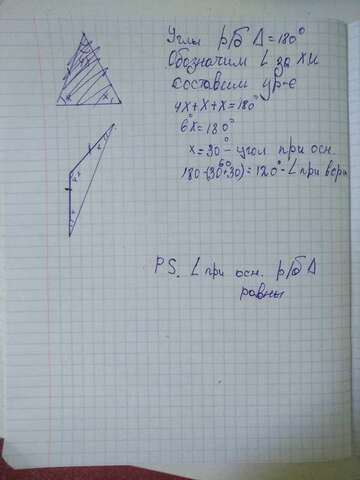 Углы р/б Δ = 180°
Обозначим ∠ за х и
составим ур-е
4х+х+х=180°
6х=180°
х=30° - угол при осн.
180-(30+30)=120° - ∠ при вер
60
P.S. ∠ при осн. р/б Δ
равны